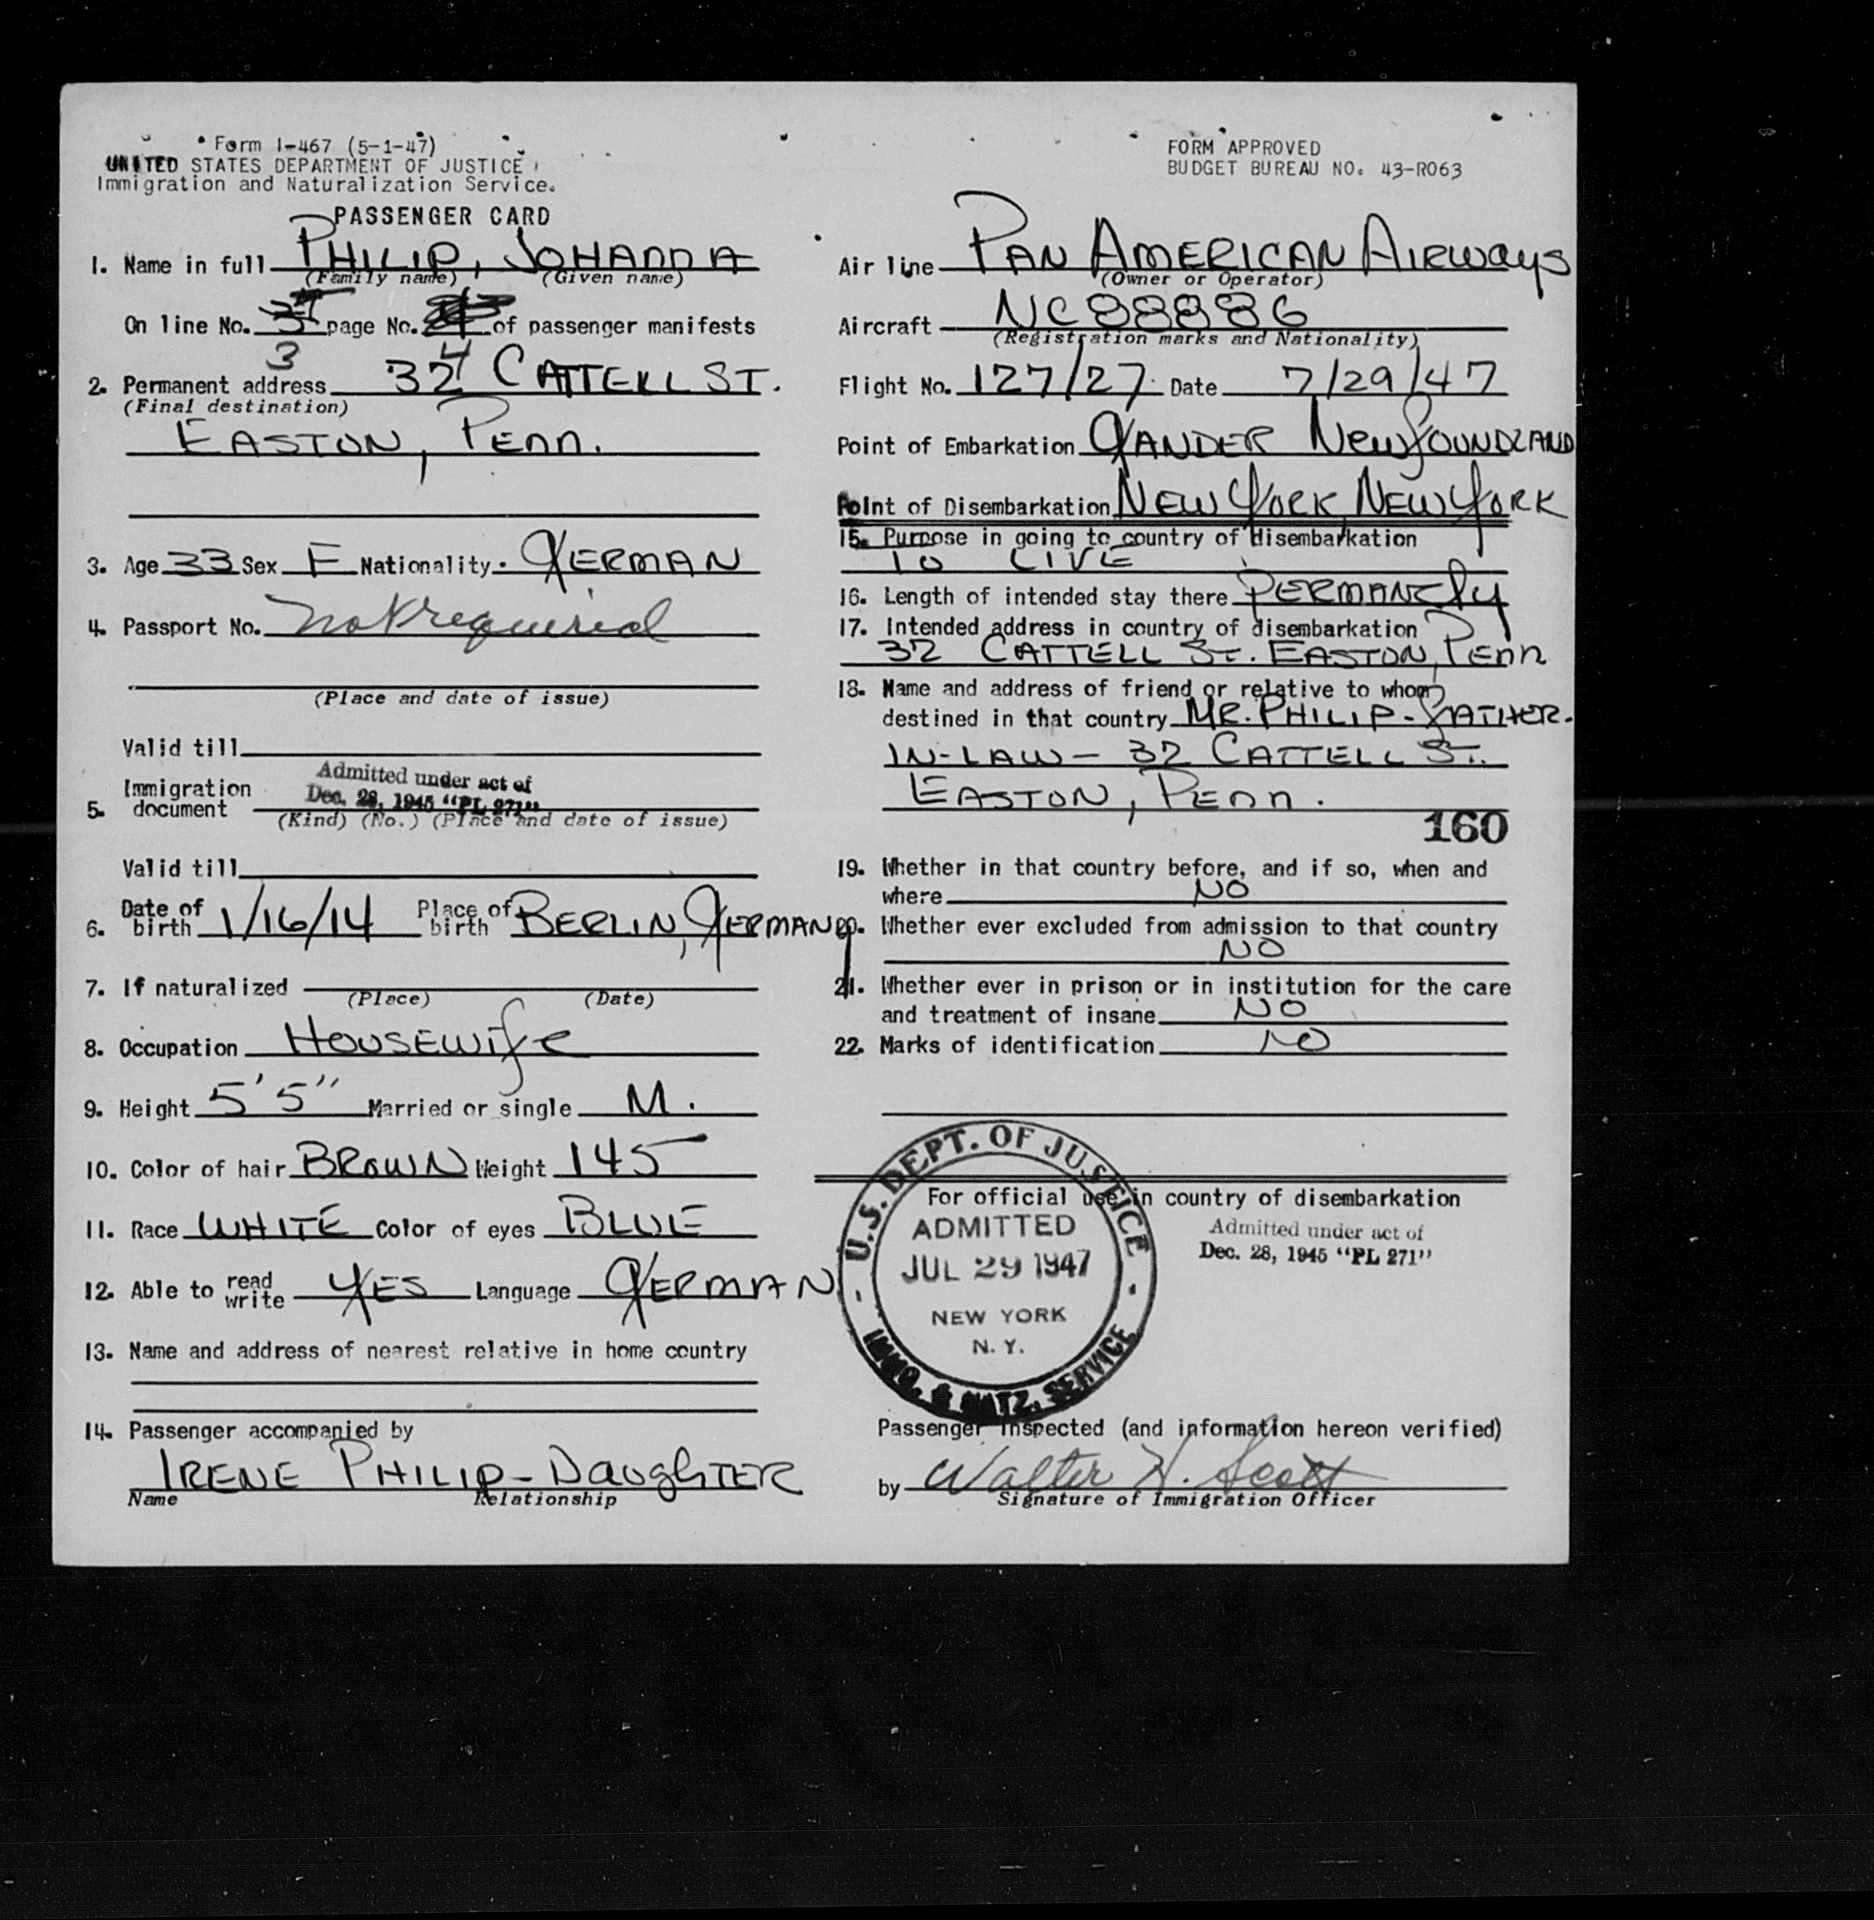 Form I-467 (5-1-47)
UNITED STATES DEPARTMENT OF JUSTICE
Immigration and Naturalization Service.
PASSENGER CARD
1. Name in full PHILIP, JOHANNA
(Family name) (Given name)
On line No. page No. of passenger manifests
3 4
2. Permanent address 32 CATTELL ST.
(Final destination)
EASTON, PENN.
3. Age 33 Sex F Nationality. GERMAN
4. Passport No. not required
(Place and date of issue)
Valid till
5. Immigration document Admitted under act of
Dec. 28, 1945 "PL 271"
(Kind) (No.) (Place and date of issue)
Valid till
6. Date of birth 1/16/14 Place of birth BERLIN, GERMANY
7. If naturalized
(Place) (Date)
8. Occupation HOUSEWife
9. Height 5'5" Married or single M.
10. Color of hair BROWN Weight 145
11. Race WHITE Color of eyes BLUE
12. Able to read write YES Language GERMAN
13. Name and address of nearest relative in home country
14. Passenger accompanied by
IRENE PHILIP - DAUGHTER
Name Relationship
FORM APPROVED
BUDGET BUREAU NO. 43-R063
Air line PAN AMERICAN AIRWAYS
(Owner or Operator)
Aircraft NC88886
(Registration marks and Nationality)
Flight No. 127/27 Date 7/29/47
Point of Embarkation GANDER NEWFOUNDLAND
Point of Disembarkation NEW YORK, NEW YORK
15. Purpose in going to country of disembarkation
TO LIVE
16. Length of intended stay there PERMANCTLY
17. Intended address in country of disembarkation
32 CATTELL ST. EASTON, PENN
18. Name and address of friend or relative to whom
destined in that country MR. PHILIP - FATHER-
IN-LAW - 32 CATTELL ST.
EASTON, PENN.
160
19. Whether in that country before, and if so, when and
where NO
20. Whether ever excluded from admission to that country
NO
21. Whether ever in prison or in institution for the care
and treatment of insane NO
22. Marks of identification NO
For official use in country of disembarkation
U.S. DEPT. OF JUSTICE
ADMITTED
JUL 29 1947
NEW YORK
N. Y.
IMMG. & NATZ. SERVICE
Admitted under act of
Dec. 28, 1945 "PL 271"
Passenger inspected (and information hereon verified)
by Walter H. Scott
Signature of Immigration Officer